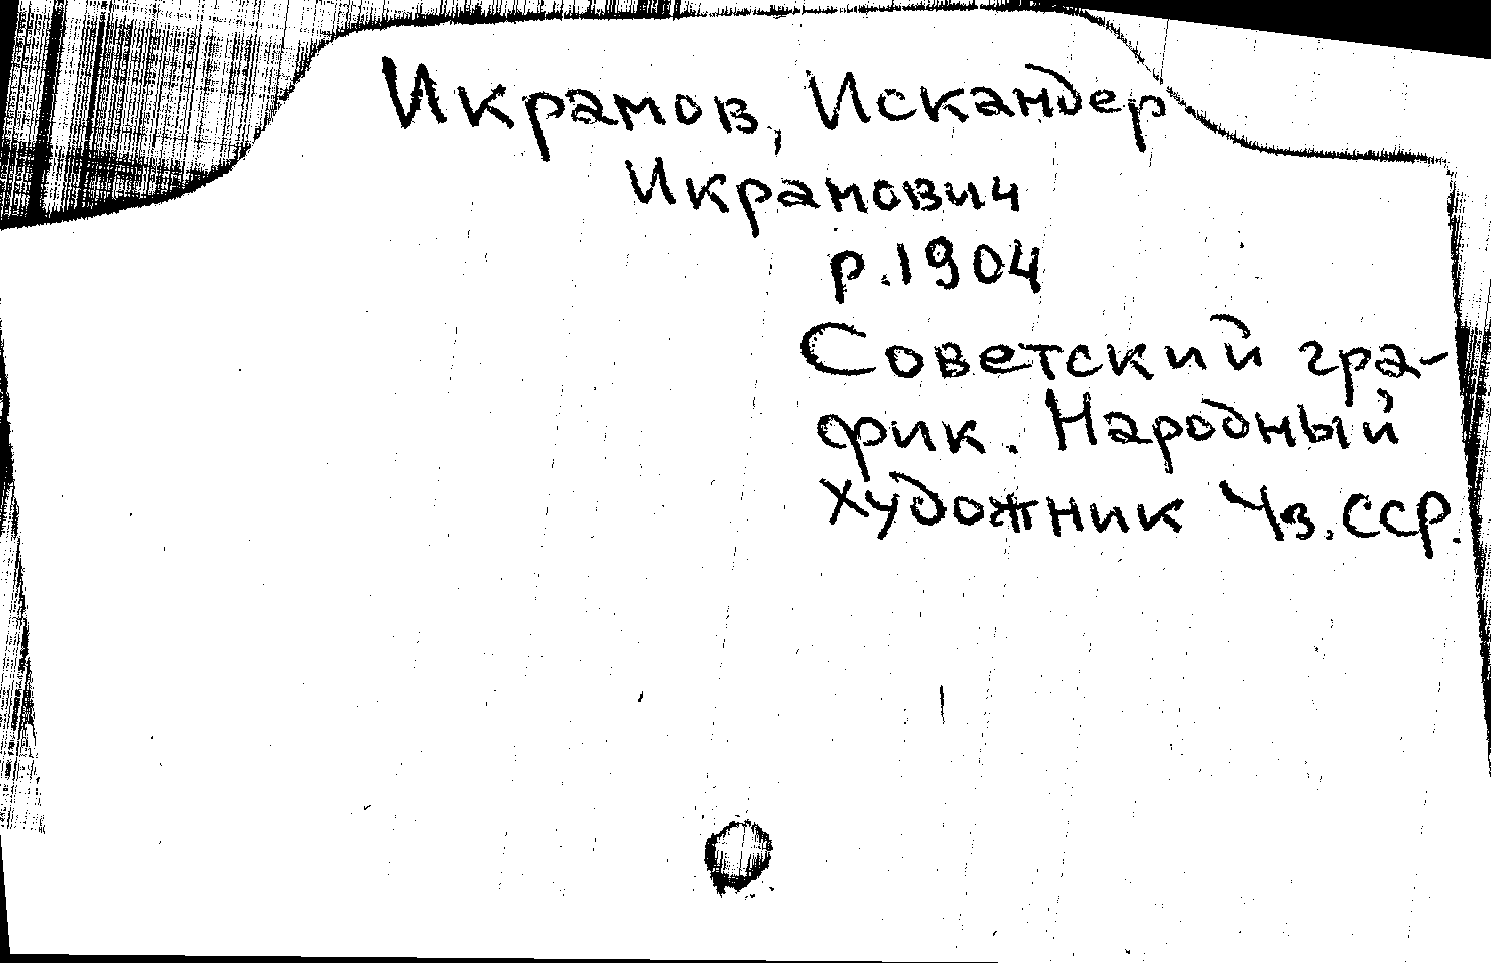 Икрамов, Искандер
Икрамович
р. 1904
Советский гра-
фик. Народный
художник Уз. ССР.